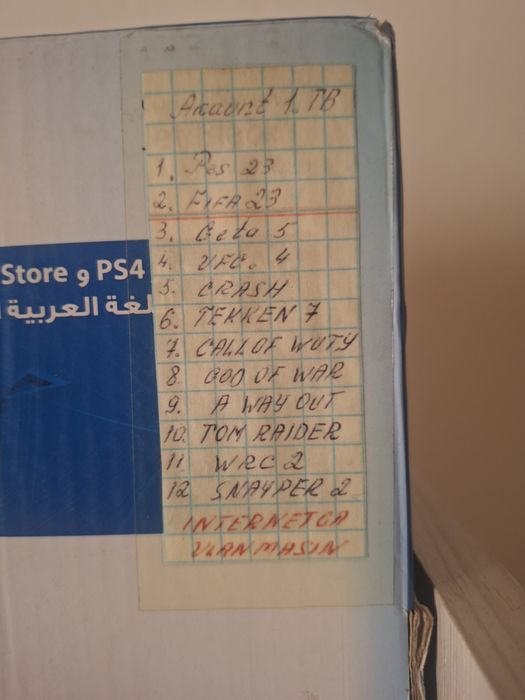 Akaunt 1.TB
1. Pes 23
2. FIFA 23
3. Geta 5
4. UFC. 4
5. CRASH
6. TEKKEN 7
7. CALL OF WUTY
8. GOD OF WAR
9. A WAY OUT
10. TOM RAIDER
11. WRC 2
12 SNAYPER 2
INTERNETGA
ULANMASIN
Store و PS4
لغة العربية